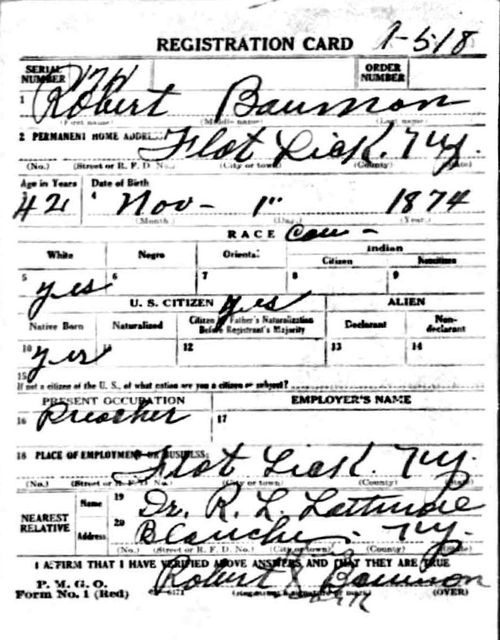 REGISTRATION CARD 9-5-18
SERIAL NUMBER
ORDER NUMBER
1 Robert Baumon
(First name) (Middle name) (Last name)
2 PERMANENT HOME ADDRESS: Flat Lick. Ky.
(No.) (Street or R. F. D. No.) (City or town) (County) (State)
Age in Years Date of Birth
42 4 Nov - 1" 1874
(Month) (Day) (Year)
RACE Cau -
White Negro Oriental Indian
Citizen Noncitizen
5 yes 6 7 8 9
U. S. CITIZEN yes ALIEN
Native Born Naturalized Citizen by Father's Naturalization Before Registrant's Majority Declarant Non-declarant
10 yes 11 12 13 14
15
If not a citizen of the U. S., of what nation are you a citizen or subject?
PRESENT OCCUPATION EMPLOYER'S NAME
16 Preacher 17
18 PLACE OF EMPLOYMENT OR BUSINESS: Flat Lick. Ky.
(No.) (Street or R. F. D. No.) (City or town) (County) (State)
NEAREST RELATIVE
Name 19 Dr. R. L.
Address 20 Blanche, Ky.
(No.) (Street or R. F. D. No.) (City or town) (County) (State)
I AFFIRM THAT I HAVE VERIFIED ABOVE ANSWERS AND THAT THEY ARE TRUE
P. M. G. O.
Form No. 1 (Red) Robert Baumon
(Registrant's signature or mark) (OVER)